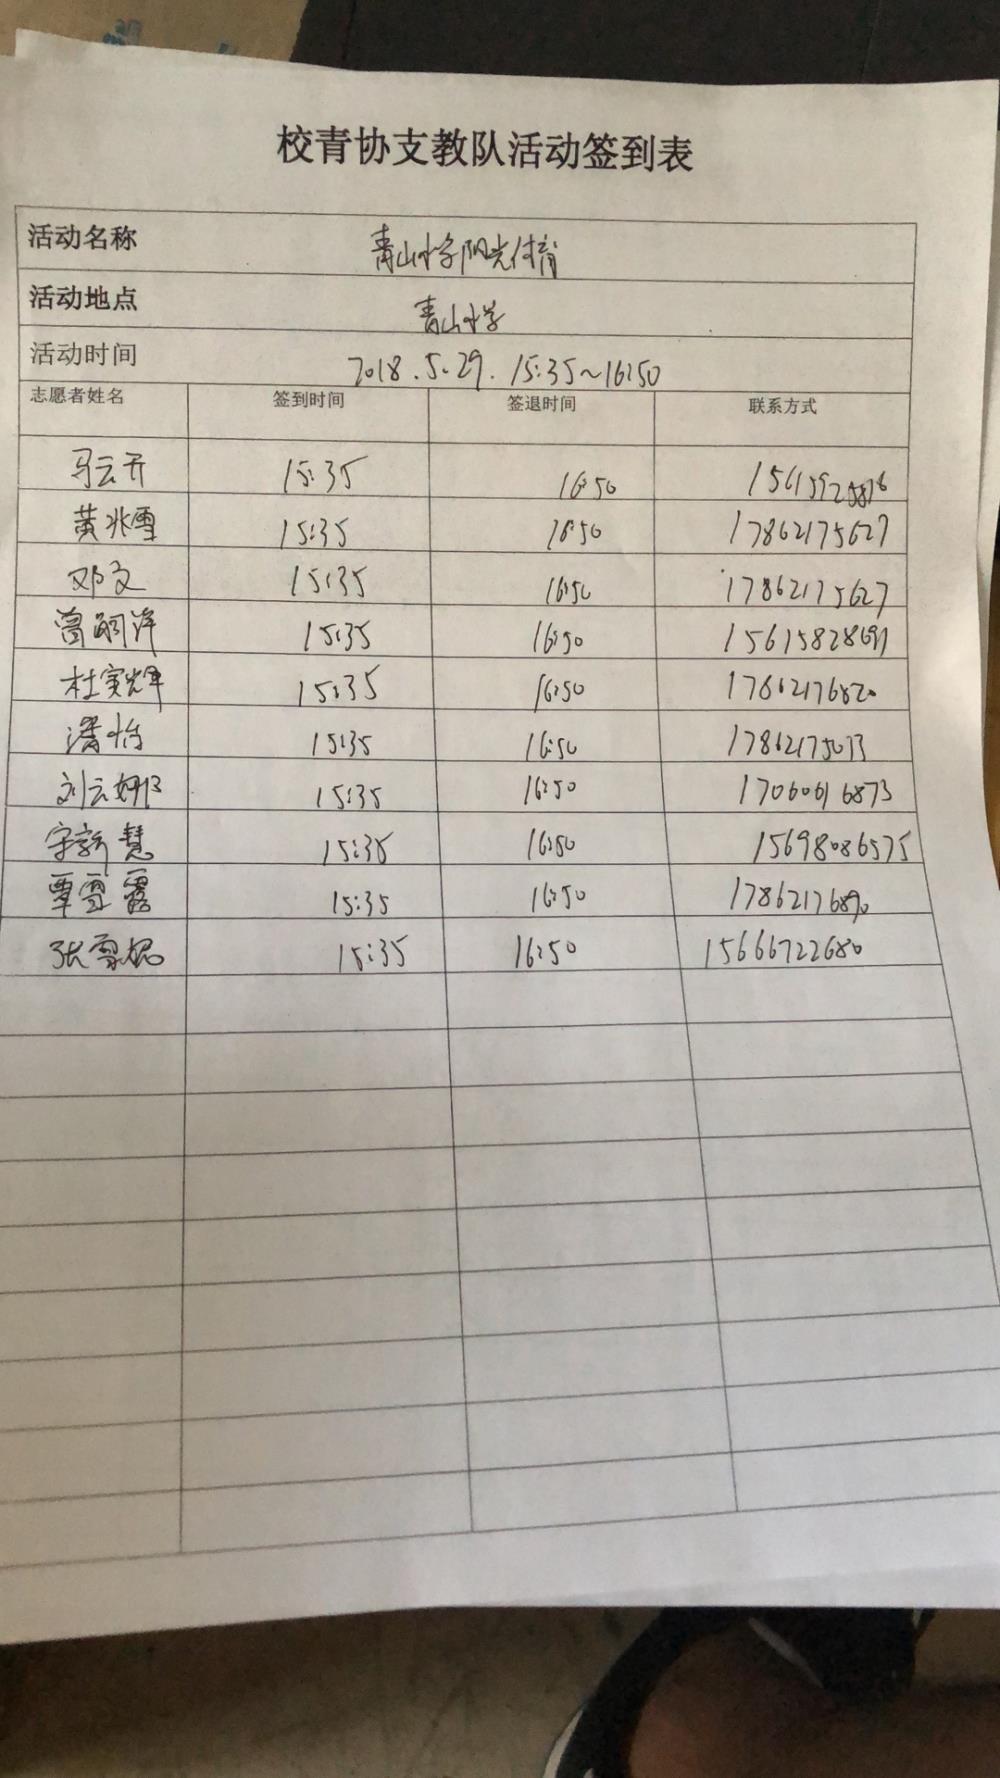 校青协支教队活动签到表
活动名称 青山小学阳光体育
活动地点 青山小学
活动时间 2018.5.29. 15:35~16:50
志愿者姓名 签到时间 签退时间 联系方式
马云开 15:35 16:50
黄兆雪 15:35 16:50 17862175627
邓文 15:35 16:50 17862175627
曾嗣洋 15:35 16:50 15615828691
杜寅辉 15:35 16:50 17862176820
潘怡 15:35 16:50 17862175073
刘云 15:35 16:50 17060616873
宇新慧 15:35 16:50 15698086575
覃雪露 15:35 16:50 17862176890
张雪 15:35 16:50 15666722680